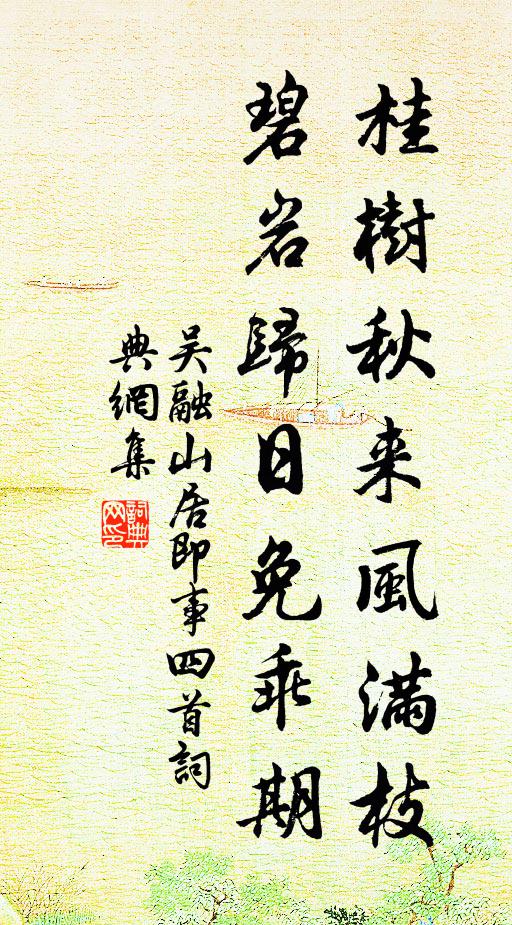 桂樹秋来風滿枝
碧岩歸日免乖期
吴融山居即事四首詞
典網集
詞典
网印